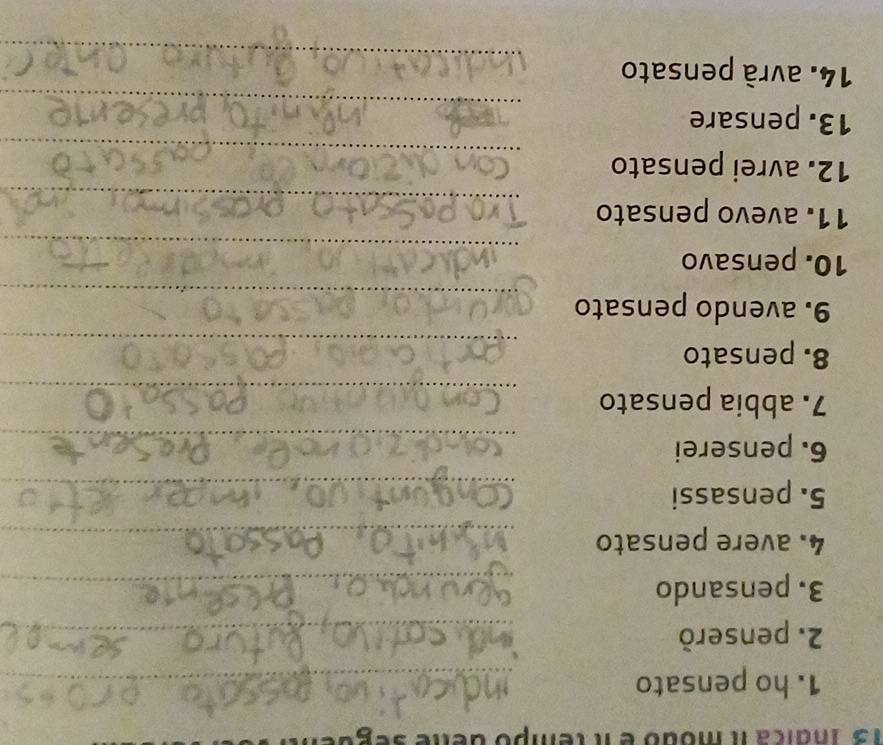 13 Indica il modo e il tempo delle seguenti
1. ho pensato indicativo, passato pross
2. penserò indicativo, futuro sempl
3. pensando gerundio, presente
4. avere pensato infinito, passato
5. pensassi conguntivo, imperfetto
6. penserei condizionale, Presente
7. abbia pensato congiuntivo passato
8. pensato participio, passato
9. avendo pensato gerundio, passato
10. pensavo indicativo, imperfetto
11. avevo pensato Trapassato prossimo, ind
12. avrei pensato condizionale, passato
13. pensare infinito, presente
14. avrà pensato indicativo, futuro anteri